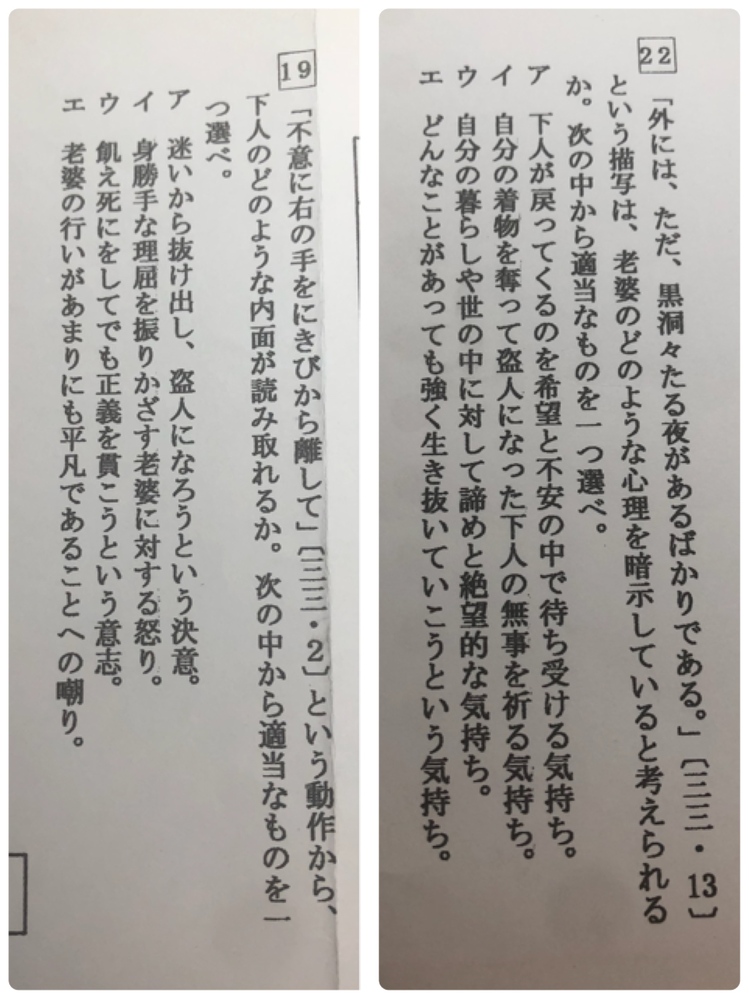 19
「不意に右の手をにきびから離して」〔三三・2〕という動作から、
下人のどのような内面が読み取れるか。次の中から適当なものを一
つ選べ。
ア 迷いから抜け出し、盗人になろうという決意。
イ 身勝手な理屈を振りかざす老婆に対する怒り。
ウ 飢え死にをしてでも正義を貫こうという意志。
エ 老婆の行いがあまりにも平凡であることへの嘲り。
22
「外には、ただ、黒洞々たる夜があるばかりである。」〔三三・13〕
という描写は、老婆のどのような心理を暗示していると考えられる
か。次の中から適当なものを一つ選べ。
ア 下人が戻ってくるのを希望と不安の中で待ち受ける気持ち。
イ 自分の着物を奪って盗人になった下人の無事を祈る気持ち。
ウ 自分の暮らしや世の中に対して諦めと絶望的な気持ち。
エ どんなことがあっても強く生き抜いていこうという気持ち。